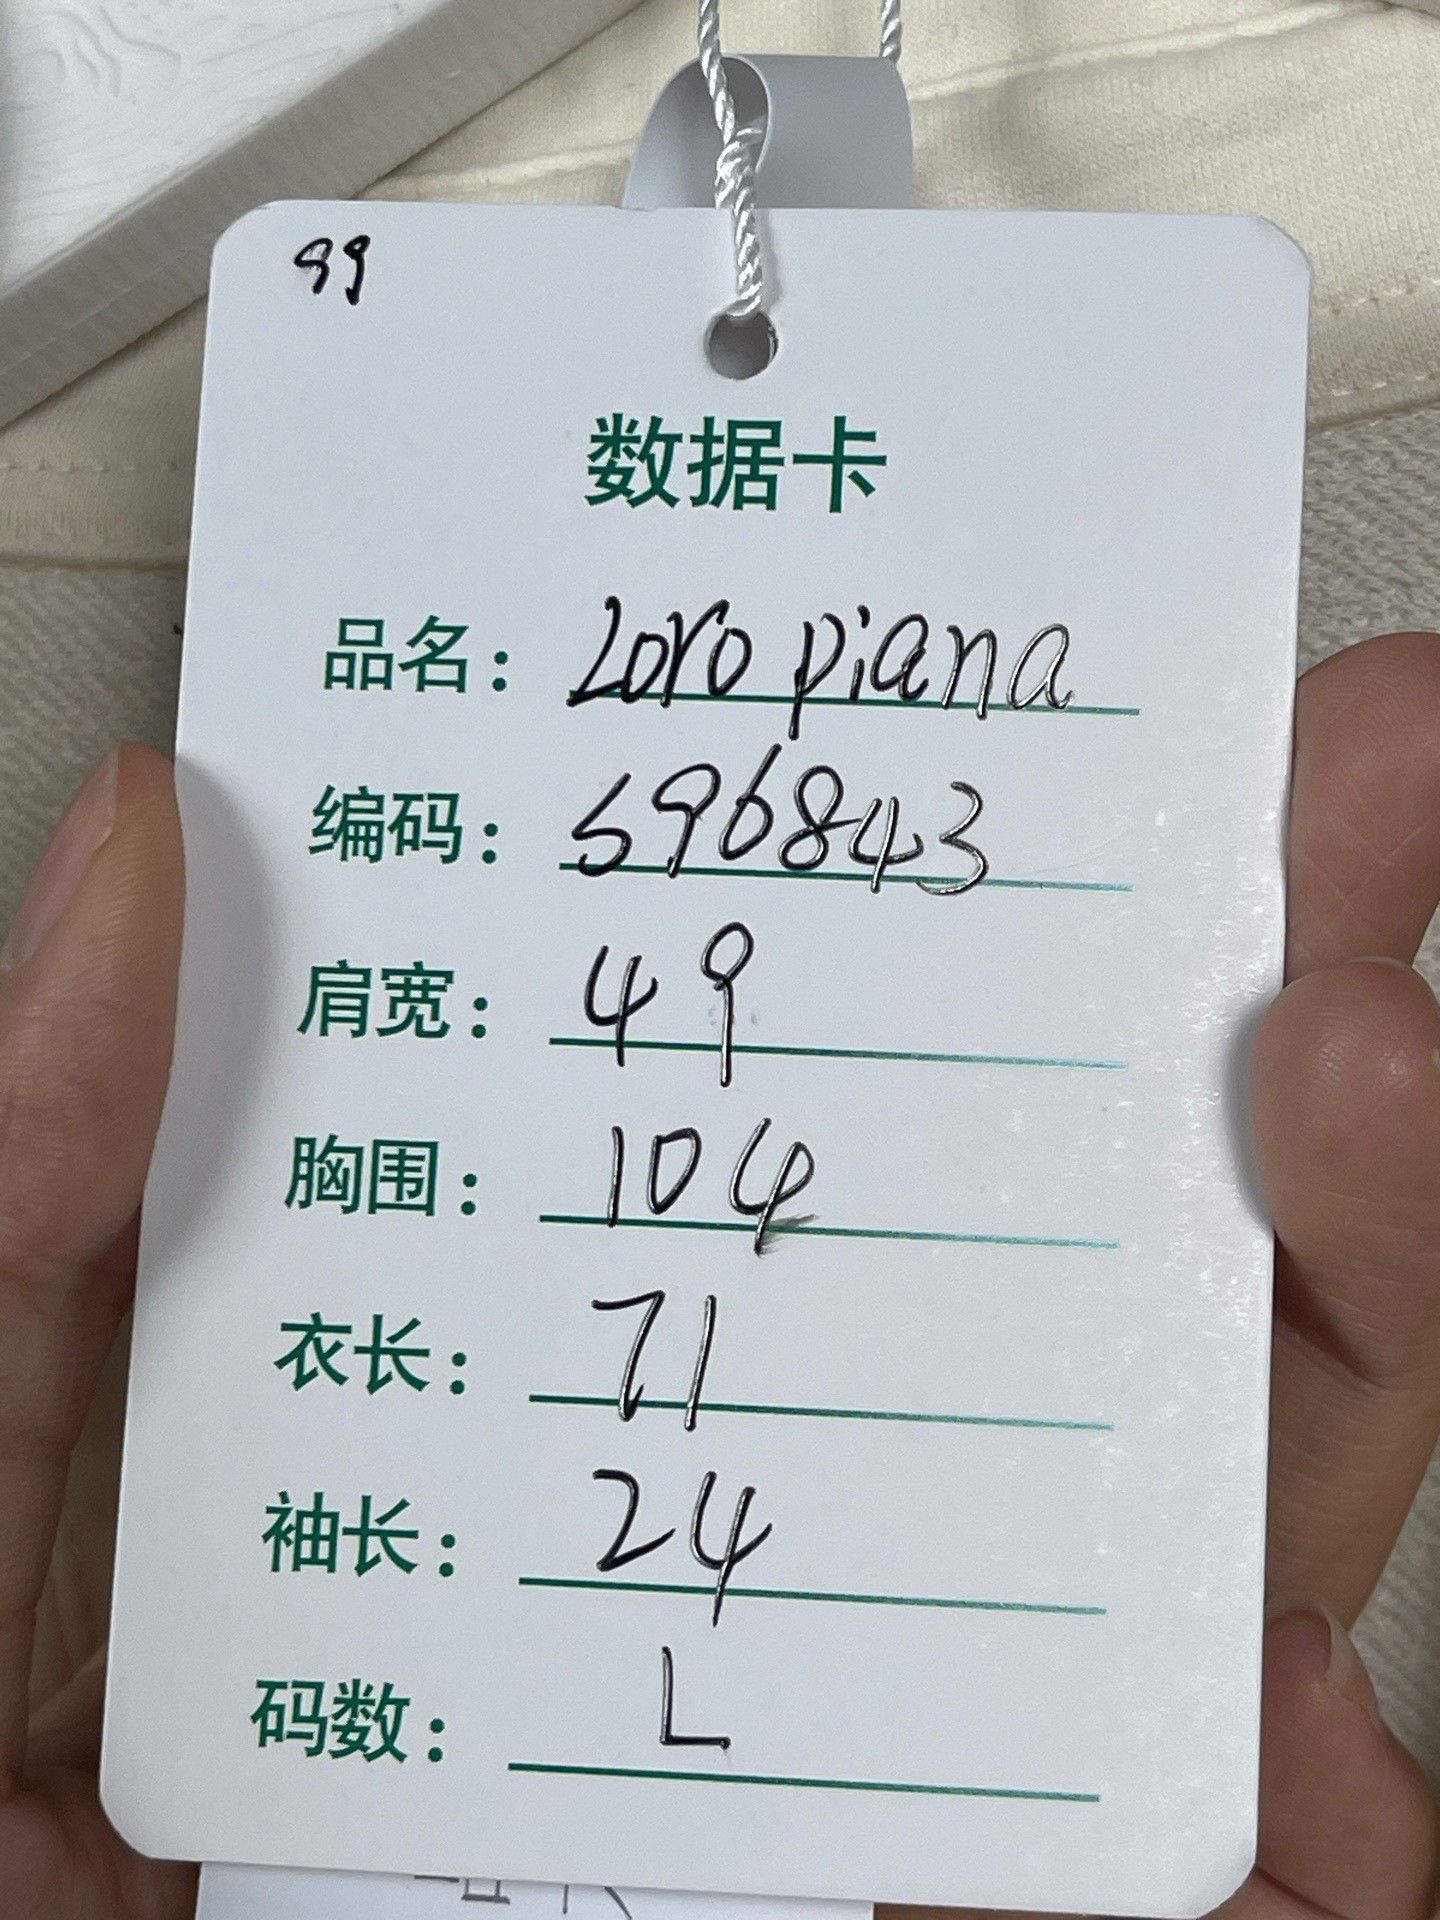 99
数据卡
品名：Loro piana
编码：596843
肩宽：49
胸围：104
衣长：71
袖长：24
码数：L